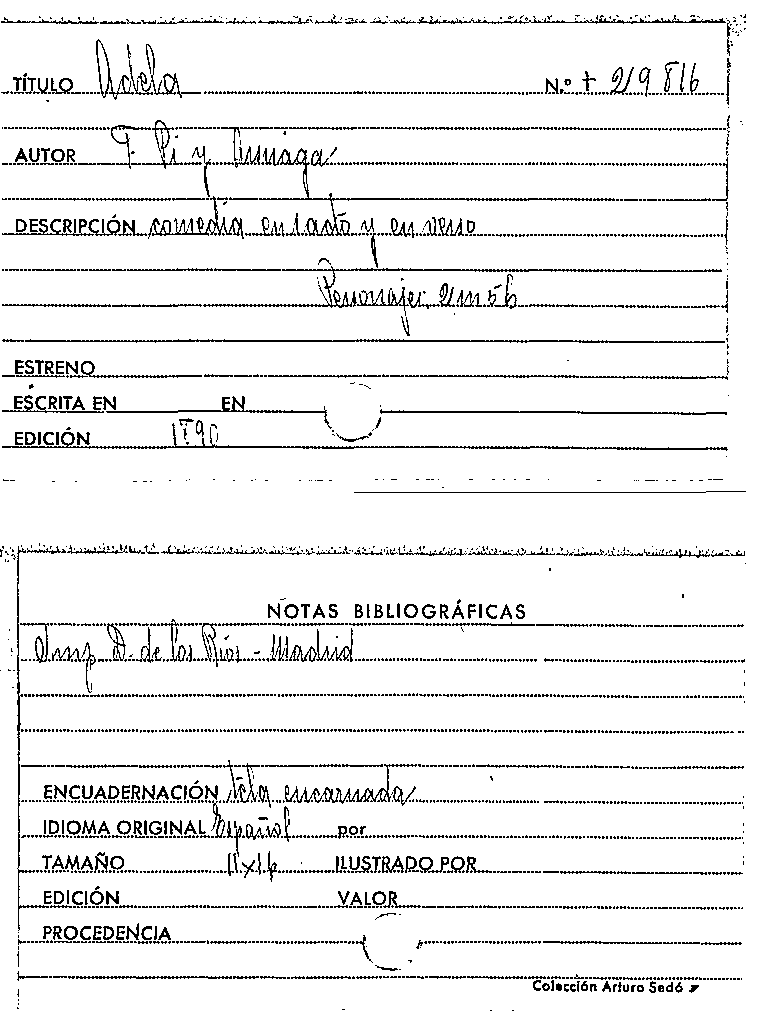 TÍTULO Adela N.º † 219816
AUTOR F. Pi y Arriaga
DESCRIPCIÓN comedia en 1 acto y en verso
Personajes 2m 5h
ESTRENO
ESCRITA EN EN
EDICIÓN 1890
NOTAS BIBLIOGRÁFICAS
Imp D. de los Ríos - Madrid
ENCUADERNACIÓN tela encarnada
IDIOMA ORIGINAL Español por
TAMAÑO 11x16 ILUSTRADO POR
EDICIÓN VALOR
PROCEDENCIA
Colección Arturo Sedó